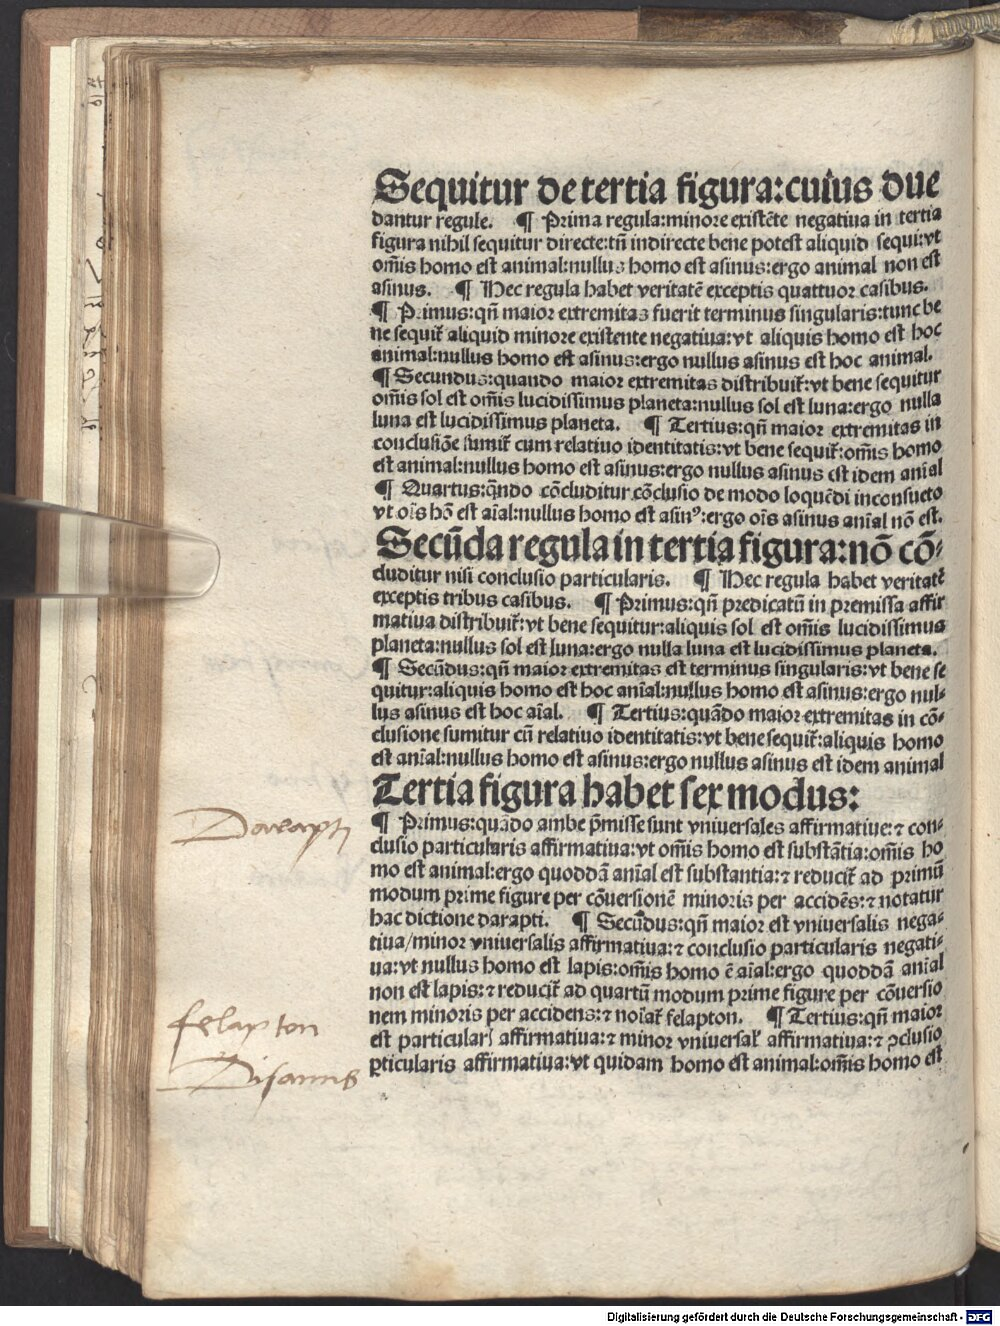 Sequitur de tertia figura:cuius due
dantur regule. ¶ Prima regula:minore existēte negatiua in tertia
figura nihil sequitur directe:tñ indirecte bene potest aliquid sequi:vt
om̄is homo est animal:nullus homo est asinus:ergo animal non est
asinus. ¶ Hec regula habet veritatē exceptis quattuor casibus.
¶ Primus:qñ maior extremitas fuerit terminus singularis:tunc be
ne sequit̄ aliquid minore existente negatiua:vt aliquis homo est hoc
animal:nullus homo est asinus:ergo nullus asinus est hoc animal.
¶ Secundus:quando maior extremitas distribuit̄:vt bene sequitur
om̄is sol est om̄is lucidissimus planeta:nullus sol est luna:ergo nulla
luna est lucidissimus planeta. ¶ Tertius:qñ maior extremitas in
conclusiōe sumit̄ cum relatiuo identitatis:vt bene sequit̄:om̄is homo
est animal:nullus homo est asinus:ergo nullus asinus est idem anīal
¶ Quartus:qn̄do cōcluditur cōclusio de modo loquēdi inconsueto
vt oīs hō est aīal:nullus homo est asinꝰ:ergo oīs asinus anīal nō est.
Secūda regula in tertia figura:nō cō-
cluditur nisi conclusio particularis. ¶ Hec regula habet veritatē
exceptis tribus casibus. ¶ Primus:qñ predicatū in premissa affir
matiua distribuit̄:vt bene sequitur:aliquis sol est om̄is lucidissimus
planeta:nullus sol est luna:ergo nulla luna est lucidissimus planeta.
¶ Secūdus:qñ maior extremitas est terminus singularis:vt bene se
quitur:aliquis homo est hoc anīal:nullus homo est asinus:ergo nul-
lus asinus est hoc aīal. ¶ Tertius:quādo maior extremitas in cō-
clusione sumitur cū relatiuo identitatis:vt bene sequit̄:aliquis homo
est anīal:nullus homo est asinus:ergo nullus asinus est idem animal
Tertia figura habet sex modus:
Darapti
¶ Primus:quādo ambe p̄misse sunt vniuersales affirmatiue:⁊ con-
clusio particularis affirmatiua:vt om̄is homo est substātia:om̄is ho
mo est animal:ergo quoddā anīal est substantia:⁊ reducit̄ ad primū
modum prime figure per cōuersionē minoris per accidēs:⁊ notatur
hac dictione darapti. ¶ Secūdus:qñ maior est vniuersalis nega-
tiua/minor vniuersalis affirmatiua:⁊ conclusio particularis negati-
ua:vt nullus homo est lapis:om̄is homo ē aīal:ergo quoddā anīal
non est lapis:⁊ reducit̄ ad quartū modum prime figure per cōuersio
felapton
nem minoris per accidens:⁊ noīat̄ felapton. ¶ Tertius:qñ maior
est particularꝭ affirmatiua:⁊ minor vniuersal̓ affirmatiua:⁊ ꝯclusio
Disamis
ꝑticularis affirmatiua:vt quidam homo est animal:om̄is homo est
Digitalisierung gefördert durch die Deutsche Forschungsgemeinschaft - DFG